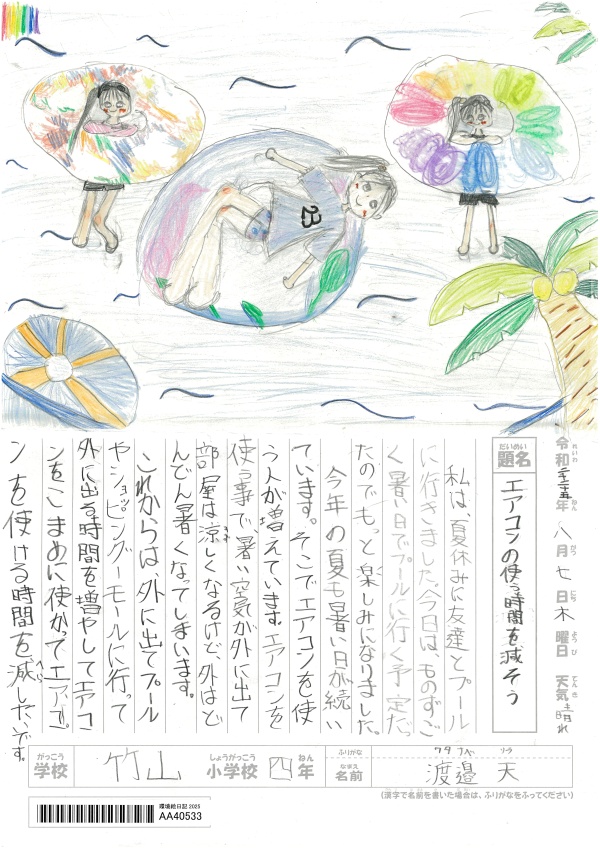 23
令和年八月七日木曜日 天気晴れ
れいわ ねん がつ にち ようび てんき
だいめい
題名 エアコンの使う時間を減そう
私は、夏休みに友達とプール
に行きました。今日は、ものすご
く暑い日でプールに行く予定だっ
たのでもっと楽しみになりました。
今年の夏も暑い日が続い
ています。そこでエアコンを使
う人が増えています。エアコンを
使う事で、暑い空気が外に出て
部屋は涼しくなるけど、外はど
んどん暑くなってしまいます。
これからは、外に出てプール
やショッピングーモールに行って
外に出る時間を増やしてエアコ
ンをこまめに使かってエアコ
ンを使ける時間を減したいです。
がっこう しょうがっこう ねん ふりがな ワタナベ ソラ
学校 竹山 小学校 四年 なまえ 名前 渡邉 天
(漢字で名前を書いた場合は、ふりがなをふってください)
環境絵日記 2025
AA40533